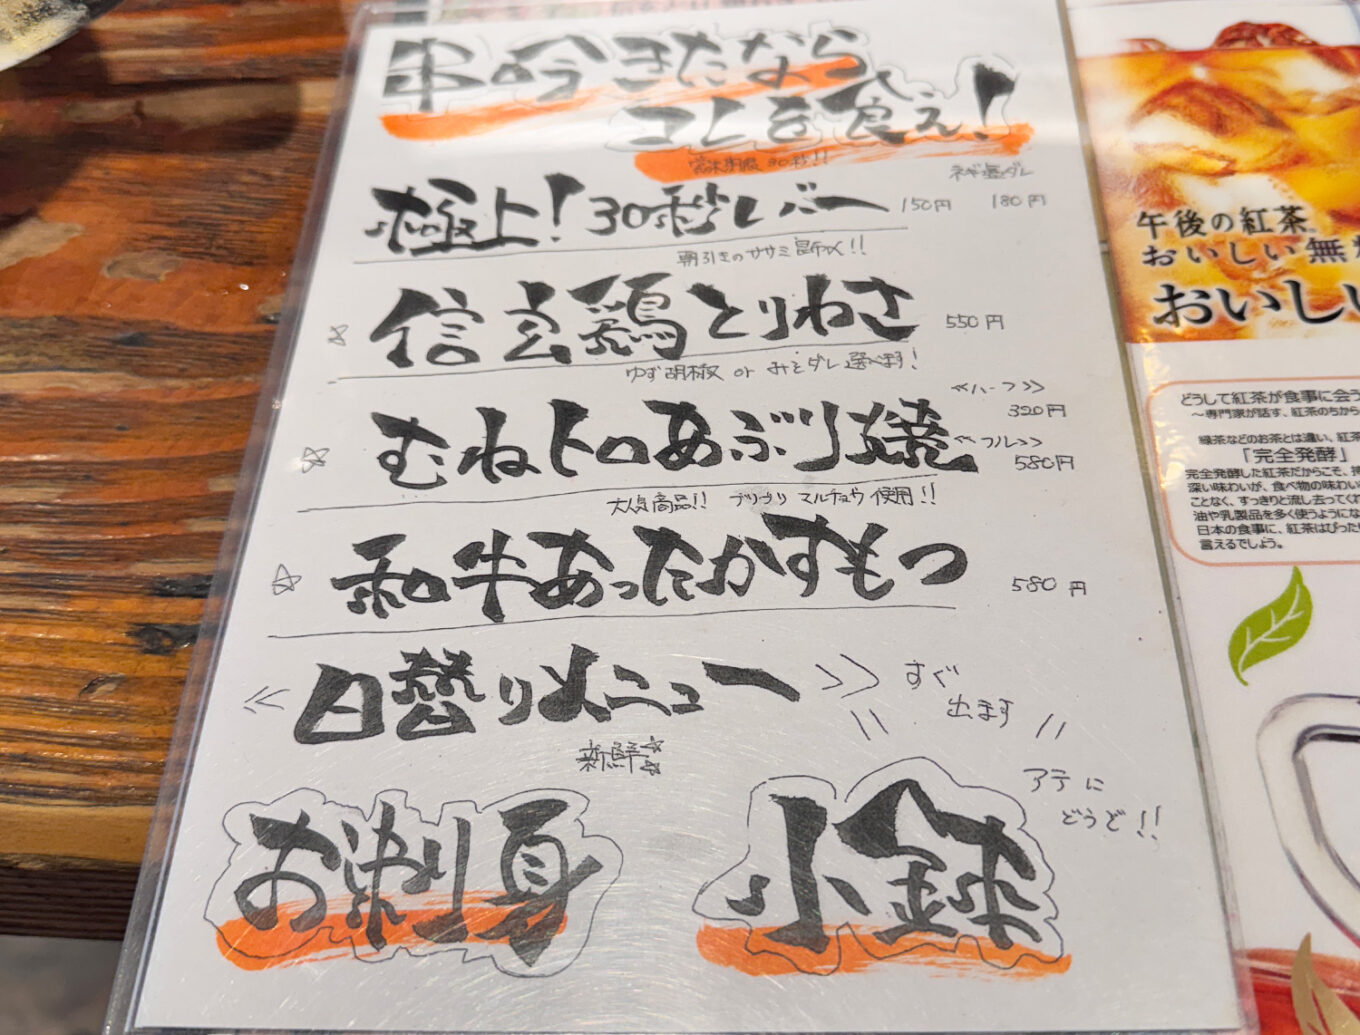 串の今きたなら
コレを食え!
賞味期限 30秒!!
ネギ塩ダレ
極上!30秒レバー 150円 180円
朝引きのササミ 昆布〆!!
☆ 信玄鶏とりわさ 550円
ゆず胡椒 or みそダレ選べます!
≪ハーフ≫
320円
☆ むねトロあぶり焼 ≪フル≫
580円
大人気商品!! プリプリ マルチョウ使用!!
☆ 和牛あったかすもつ 580円
≪ 日替りメニュー ≫
すぐ
出ます
新鮮☆☆
アテに
どうぞ!!
お刺身
小鉢
午後の紅茶
おいしい無
おいしい
どうして紅茶が食事に会う
〜専門家が話す、紅茶のちから
緑茶などのお茶とは違い、紅茶
「完全発酵」
完全発酵した紅茶だからこそ、
深い味わいが、食べ物の味わい
ことなく、すっきりと流し去ってくれ
油や乳製品を多く使うようにな
日本の食事に、紅茶はぴった
言えるでしょう。